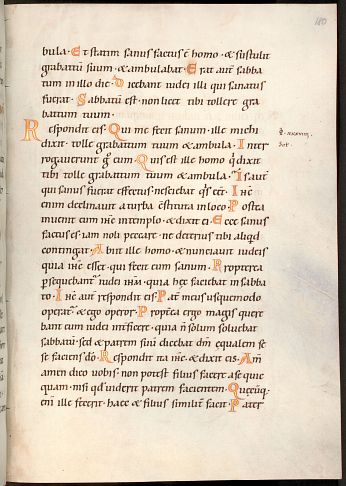 180
bula. Et statim sanus factus ē homo. & sustulit
grabattū suum. & ambulabat. Erat aut̄ sabba
tum in illo die. Dicebant iudei illi qui sanatus
fuerat. Sabbatū est. non licet tibi tollere gra
battum tuum.
Respondit eis. Qui me fecit sanum. ille michi
dixit. tolle grabattum tuum & ambula. Inter
rogauerunt g̊ eum. Quis est ille homo q̇ dixit
tibi tolle grabattum tuum & ambula. Is aut̄
qui sanus fuerat effectus. nesciebat q̇s eēt. Ihc̄
enim declinauit a turba cstituta in loco. Postea
inuenit eum ihc̄ in templo. & dixit ei. Ecce sanus
factus es iam noli peccare. ne deterius tibi aliq̇d
contingat. Abiit ille homo. & nunciauit iudeis
quia ihc̄ esset. qui fecit eum sanum. Propterea
p̄sequebant̄ iudei ihm̄. quia hęc faciebat in sabba
to. Ihc̄ aut̄ respondit eis. Pat̄ meus usquemodo
operat̄. & ego operor. Propt̄ea ergo magis quere
bant eum iudei int̄ficere. quia n̄ solum soluebat
sabbatū. sed & patrem suū dicebat dm̄. equalem se
se faciens dō. Respondit ita ihc̄. & dixit eis. Am̄
amen dico uobis. non potest filius facere a se quic
quam. nisi qd̓ uiderit patrem facientem. Quęcūq;
eni ille fecerit. haec & filius similit̄ facit. Pater